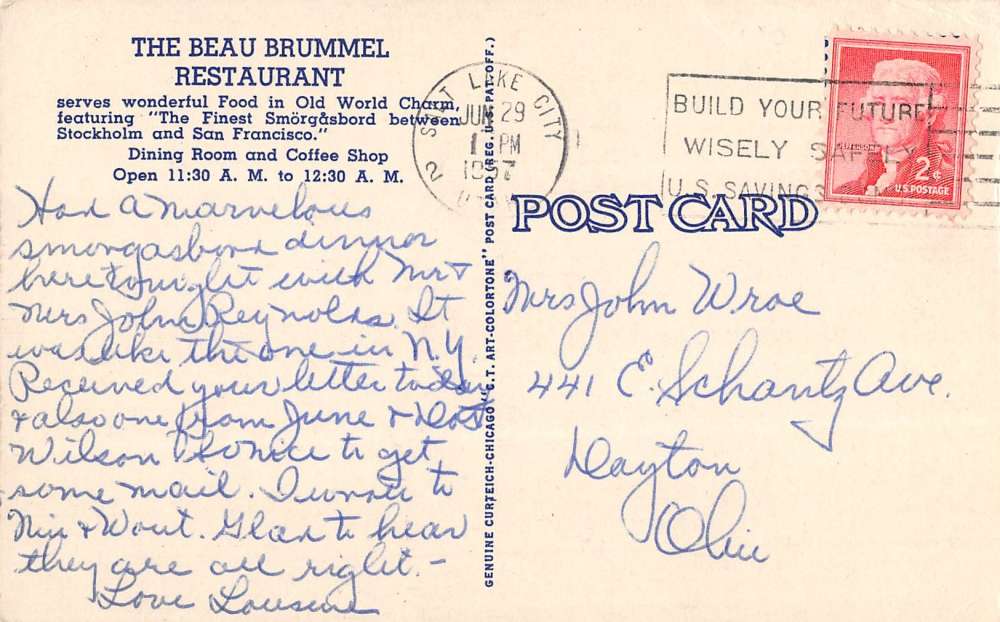 THE BEAU BRUMMEL
RESTAURANT
serves wonderful Food in Old World Charm,
featuring "The Finest Smörgåsbord between
Stockholm and San Francisco."
Dining Room and Coffee Shop
Open 11:30 A. M. to 12:30 A. M.
Had a marvelous
smorgasbord dinner
here tonight with Mr &
Mrs John Reynolds. It
was like the one in N.Y.
Received your letter today
& also one from June &
Wilson so nice to get
some mail. I wrote to
& Wout. Glad to hear
they are all right. -
Love
GENUINE CURTEICH-CHICAGO "C.T. ART-COLORTONE" POST CARD (REG. U.S. PAT. OFF.)
SALT LAKE CITY
JUN 29
PM
1957
2
BUILD YOUR FUTURE
WISELY SAFELY
U.S. SAVINGS
JEFFERSON
2¢
U.S. POSTAGE
POST CARD
Mrs John Wroe
441 E. Schantz Ave.
Dayton
Ohio